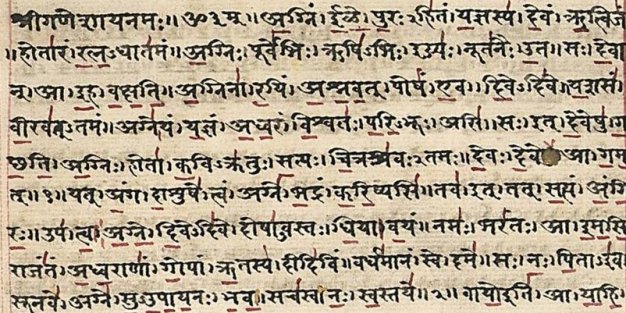 श्रीगणेशायनमः॥ॐ३म्॥अग्निं।ईळे।पुरःऽहितं।यज्ञस्य।देवं।ऋत्विजं
॥होतारं।रत्नऽधातमं॥अग्निः।पूर्वेभिः।ऋषिऽभिः।ईड्यः।नूतनैः।उत॥सः।देवा
न्।आ।इह।वक्षति॥अग्निना।रयिं।अश्नवत्।पोषं।एव।दिवेऽदिवे॥यशसं।
वीरवत्ऽतमं॥अग्ने।यं।यज्ञं।अध्वरं।विश्वतः।परिऽभूः।असि॥सः।इत्।देवेषु।ग
च्छति॥अग्निः।होता।कविऽक्रतुः।सत्यः।चित्रश्रवःऽतमः॥देवः।आ।गम
त्॥१॥यत्।अंग।दाशुषे।त्वं।अग्ने।भद्रं।करिष्यसि॥तव।इत्।तत्।सत्यं।अंगि
रः॥उप।त्वा।अग्ने।दिवेऽदिवे।दोषाऽवस्तः।धिया।वयं॥नमः।भरंतः।आ।इमसि
राजंतं।अध्वराणां।गोपां।ऋतस्य।दीदिविं॥वर्धमानं।स्वे।दमे॥सः।नः।पिताऽइव
सूनवे।अग्ने।सुऽउपायनः।भव॥सचस्व।नः।स्वस्तये॥२॥वायोइति।आ।याहि।